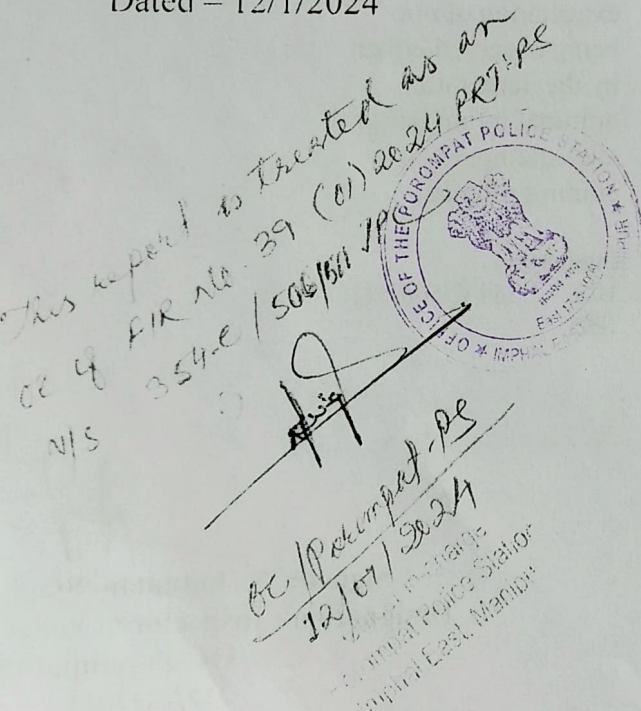 Dated – 12/1/2024
This report is treated as an
OE of FIR No 39 (01) 2024 PRT-PS
U/S 354-C / 506/511 IPC
OFFICE OF THE POROMPAT POLICE STATION
IMPHAL
OC/Porompat-PS
12/01/2024
Porompat Police Station
Imphal East, Manipur